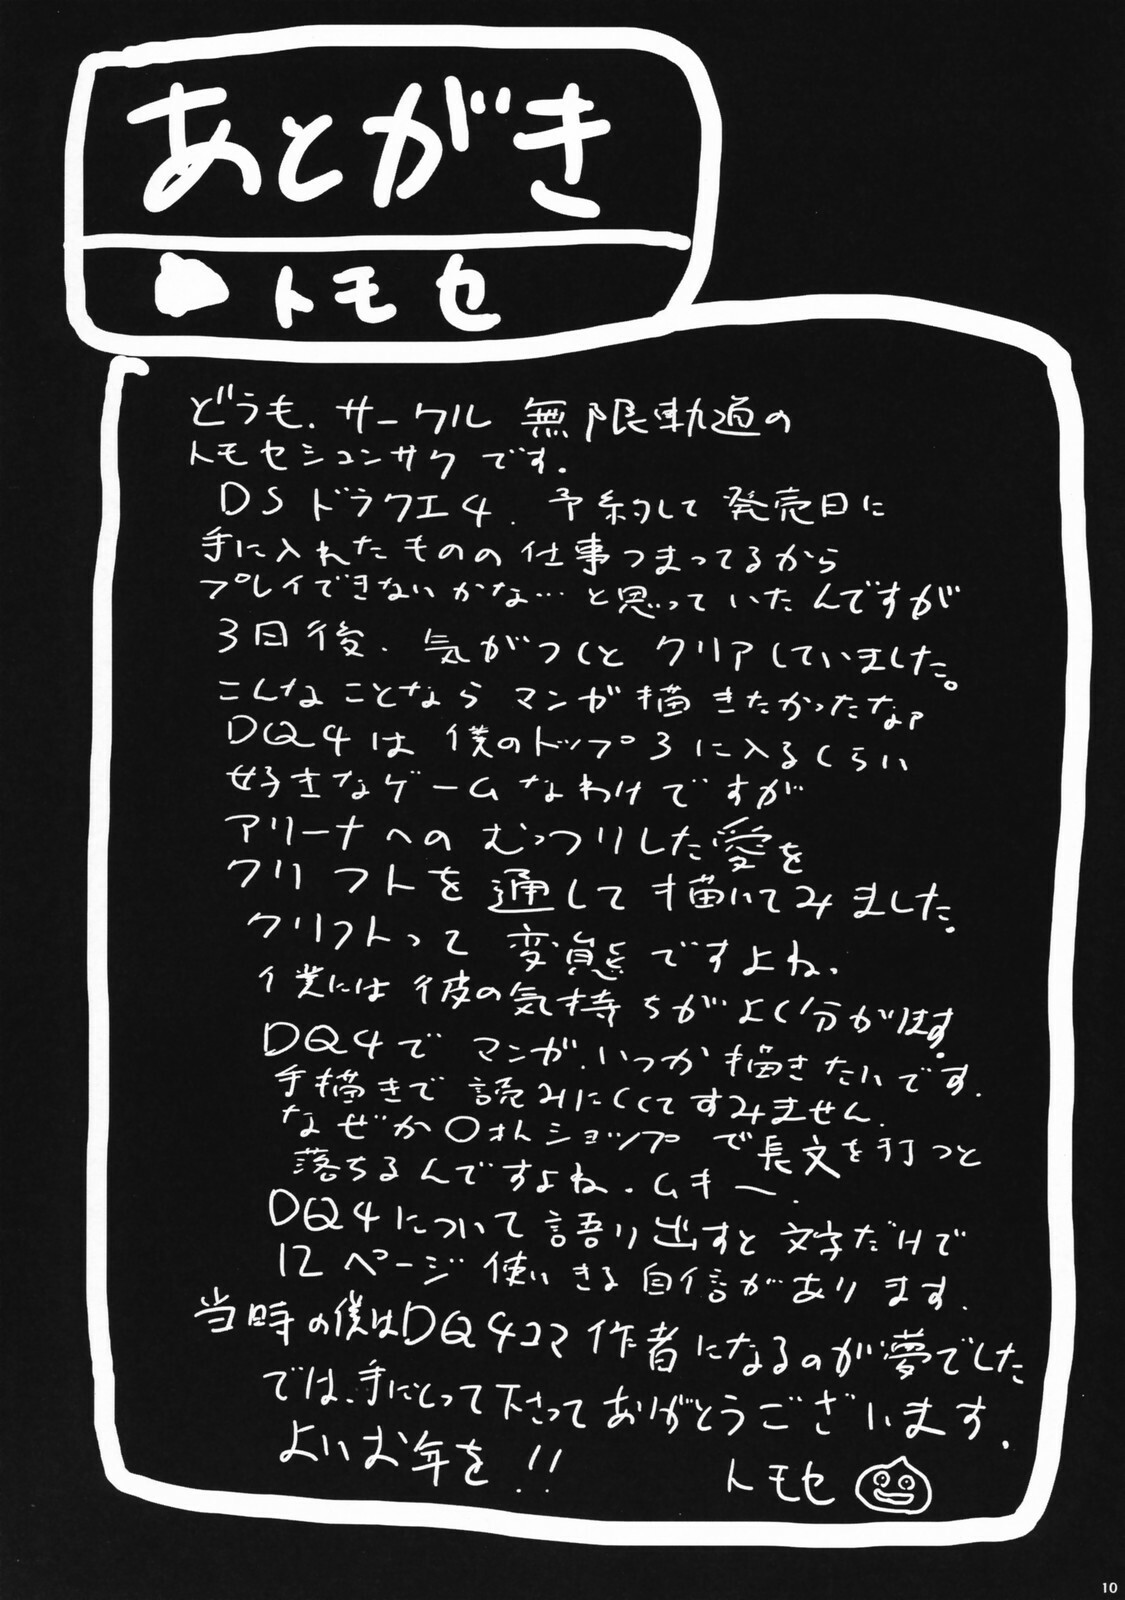 あとがき
トモセ
どうも、サークル 無限軌道の
トモセシュンサクです。
DSドラクエ4、予約して発売日に
手に入れたものの仕事つまってるから
プレイできないかな…と思っていたんですが
3日後、気がつくとクリアしていました。
こんなことならマンガ描きたかったなァ
DQ4は僕のトップ3に入るくらい
好きなゲームなわけですが
アリーナへのむっつりした愛を
クリフトを通して描いてみました。
クリフトって変態ですよね。
僕には彼の気持ちがよく分かります。
DQ4でマンガ、いつか描きたいです。
手描きで読みにくくてすみません。
なぜか〇ォトショップで長文を打つと
落ちるんですよね。ムキー。
DQ4について語り出すと文字だけで
12ページ使いきる自信があります。
当時の僕はDQ4コマ作者になるのが夢でした
では、手にとって下さってありがとうございます。
よいお年を!!
トモセ
10